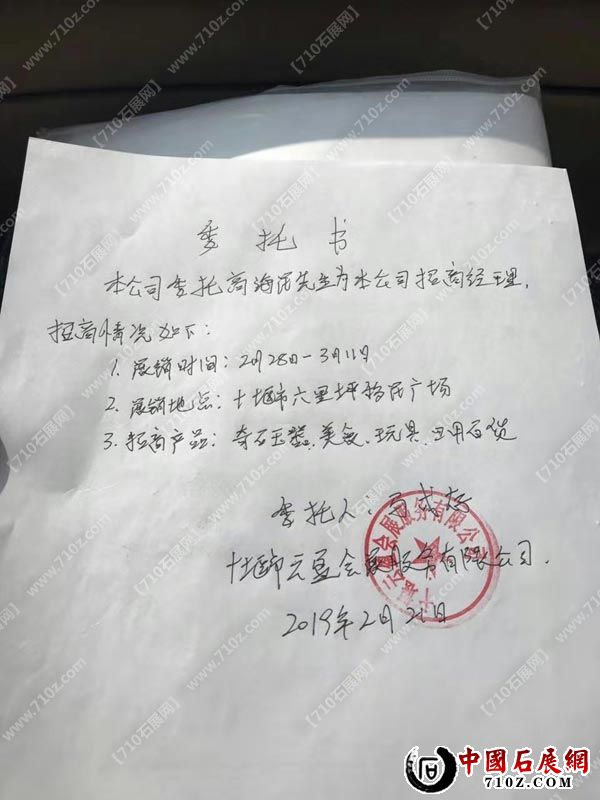 委托书
本公司委托高海民先生为本公司招商经理,
招商情况如下:
1. 展销时间:2月28日—3月11日
2. 展销地点:十堰市六里坪移民广场
3. 招商产品:奇石玉器、美食、玩具、日用百货
委托人:
十堰云夏会展服务有限公司.
2019年2月21日
会展服务有限公司
中國石展網
710Z.COM
【710石展网】
www.710z.com